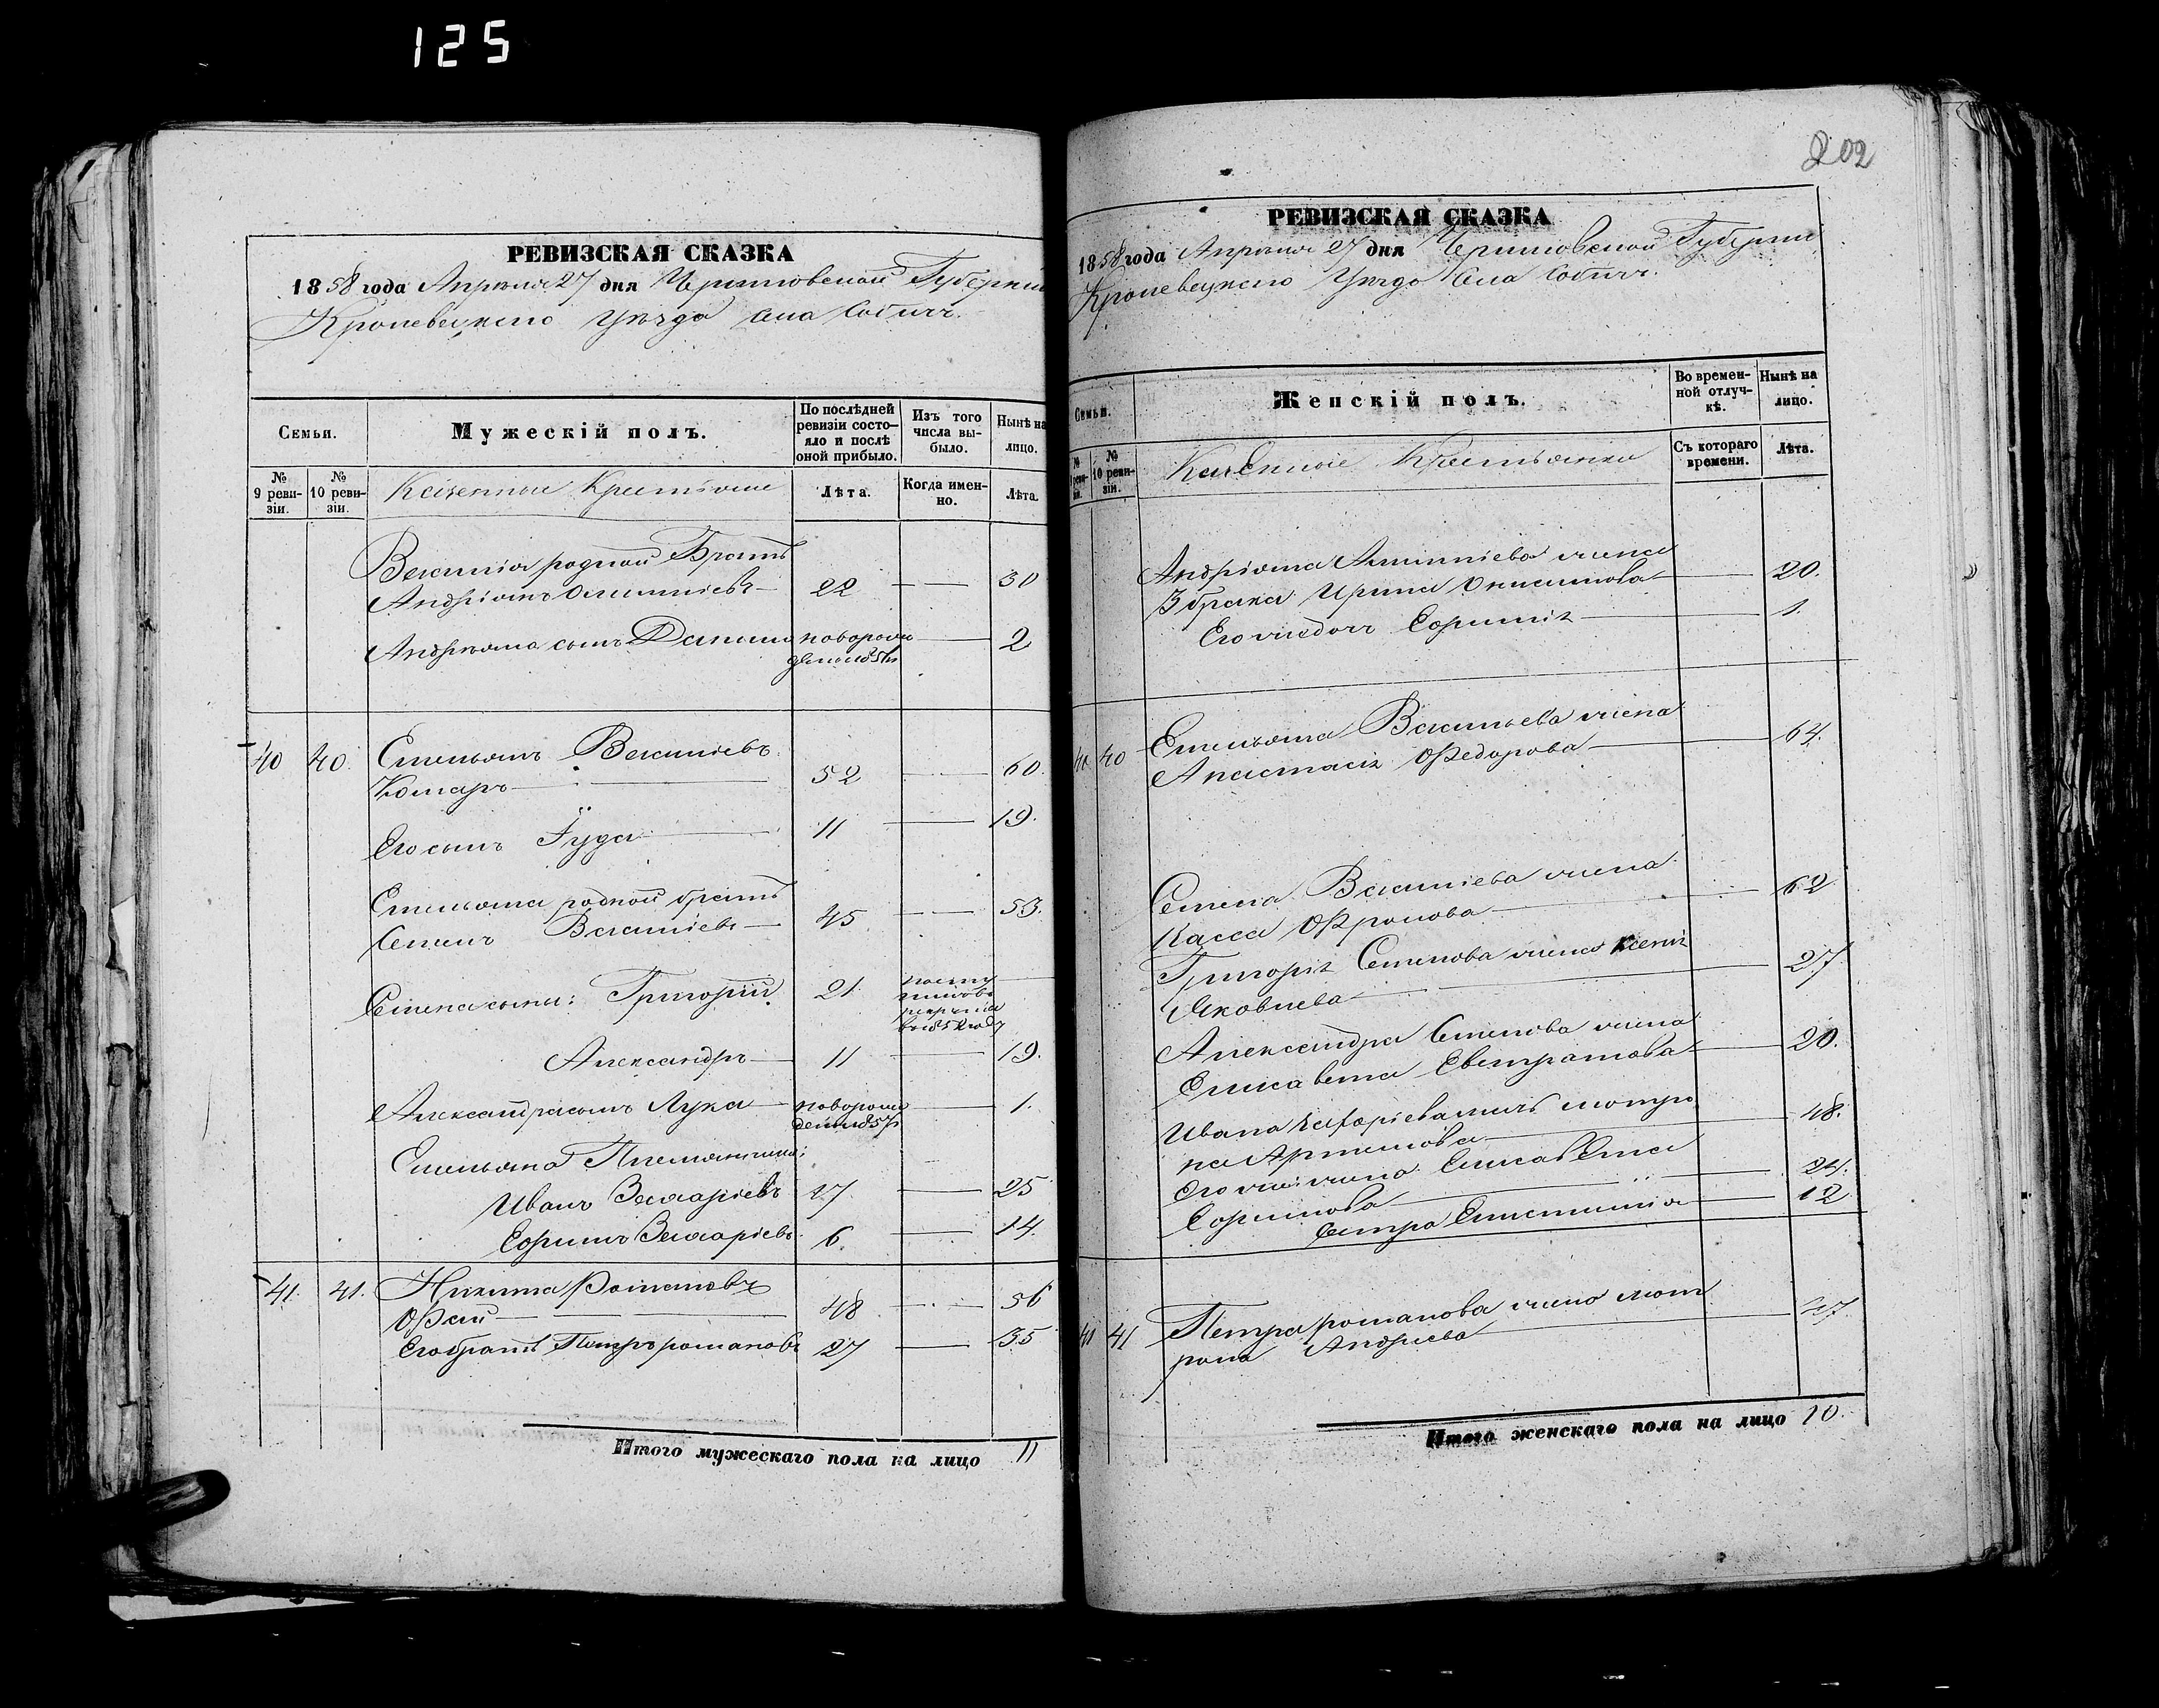 125
РЕВИЗСКАЯ СКАЗКА
1858 года Апреля 27 дня Черниговской Губернии
Кролевецкого Уезда Села Собичъ.
Семьи.
Мужескій полъ.
По послѣдней ревизіи состояло и послѣ оной прибыло.
Изъ того числа выбыло.
Нынѣ на лицо.
№ 9 ревизіи.
№ 10 ревизіи.
Казенные Крестьяне
Лѣта.
Когда именно.
Лѣта.
Василия родной Братъ
Андріянъ 22 — — 30
Андрияна сынъ Данило новорож — 2
40 40. Емельянъ Василіевъ
Комаръ — 52 — 60.
Его сынъ Іуда — 11 — 19.
Емельяна родной братъ
Семенъ Василіевъ — 45 — — 53.
Семена сыны: Григорий 21.
в 1852 году
Александръ — 11 — 19.
Александра сынъ Лука — новорож — 1.
Емельяна Племянники:
Иванъ Захаріевъ 17 — 25
Ефимъ Захаріевъ 6. — 14.
41. 41. Никита Романовъ
48 — 56
Его братъ Петръ романовъ 27 — 35
Итого мужескаго пола на лицо 11
202
РЕВИЗСКАЯ СКАЗКА
1858 года Апреля 27 дня Черниговской Губернии
Кролевецкого Уезда Села Собичъ.
Семьи.
Женскій полъ.
Во временной отлучкѣ.
Нынѣ на лицо.
№ 9 ревизіи.
№ 10 ревизіи.
Казенные Крестьянки
Съ котораго времени.
Лѣта.
Андріяна жена
Ирина Онисимова — 20.
Его — 1.
40 40 Емельяна Васильева жена
Анастасія Федорова — 64.
Семена Василіева жена
Васса Фролова — 62
Григорія Семенова жена Ксенія
Яковлева — 27.
Александра Семенова жена
Елисавета Евстратова — 20.
Ивана Захаріева мать мотро
на Артемова — 48.
Его жена Елисавета
Ефимова — 24.
Сестра — 12
41 41 Петра романова жена мот
рона Андреева — 27
Итого женскаго пола на лицо 10.